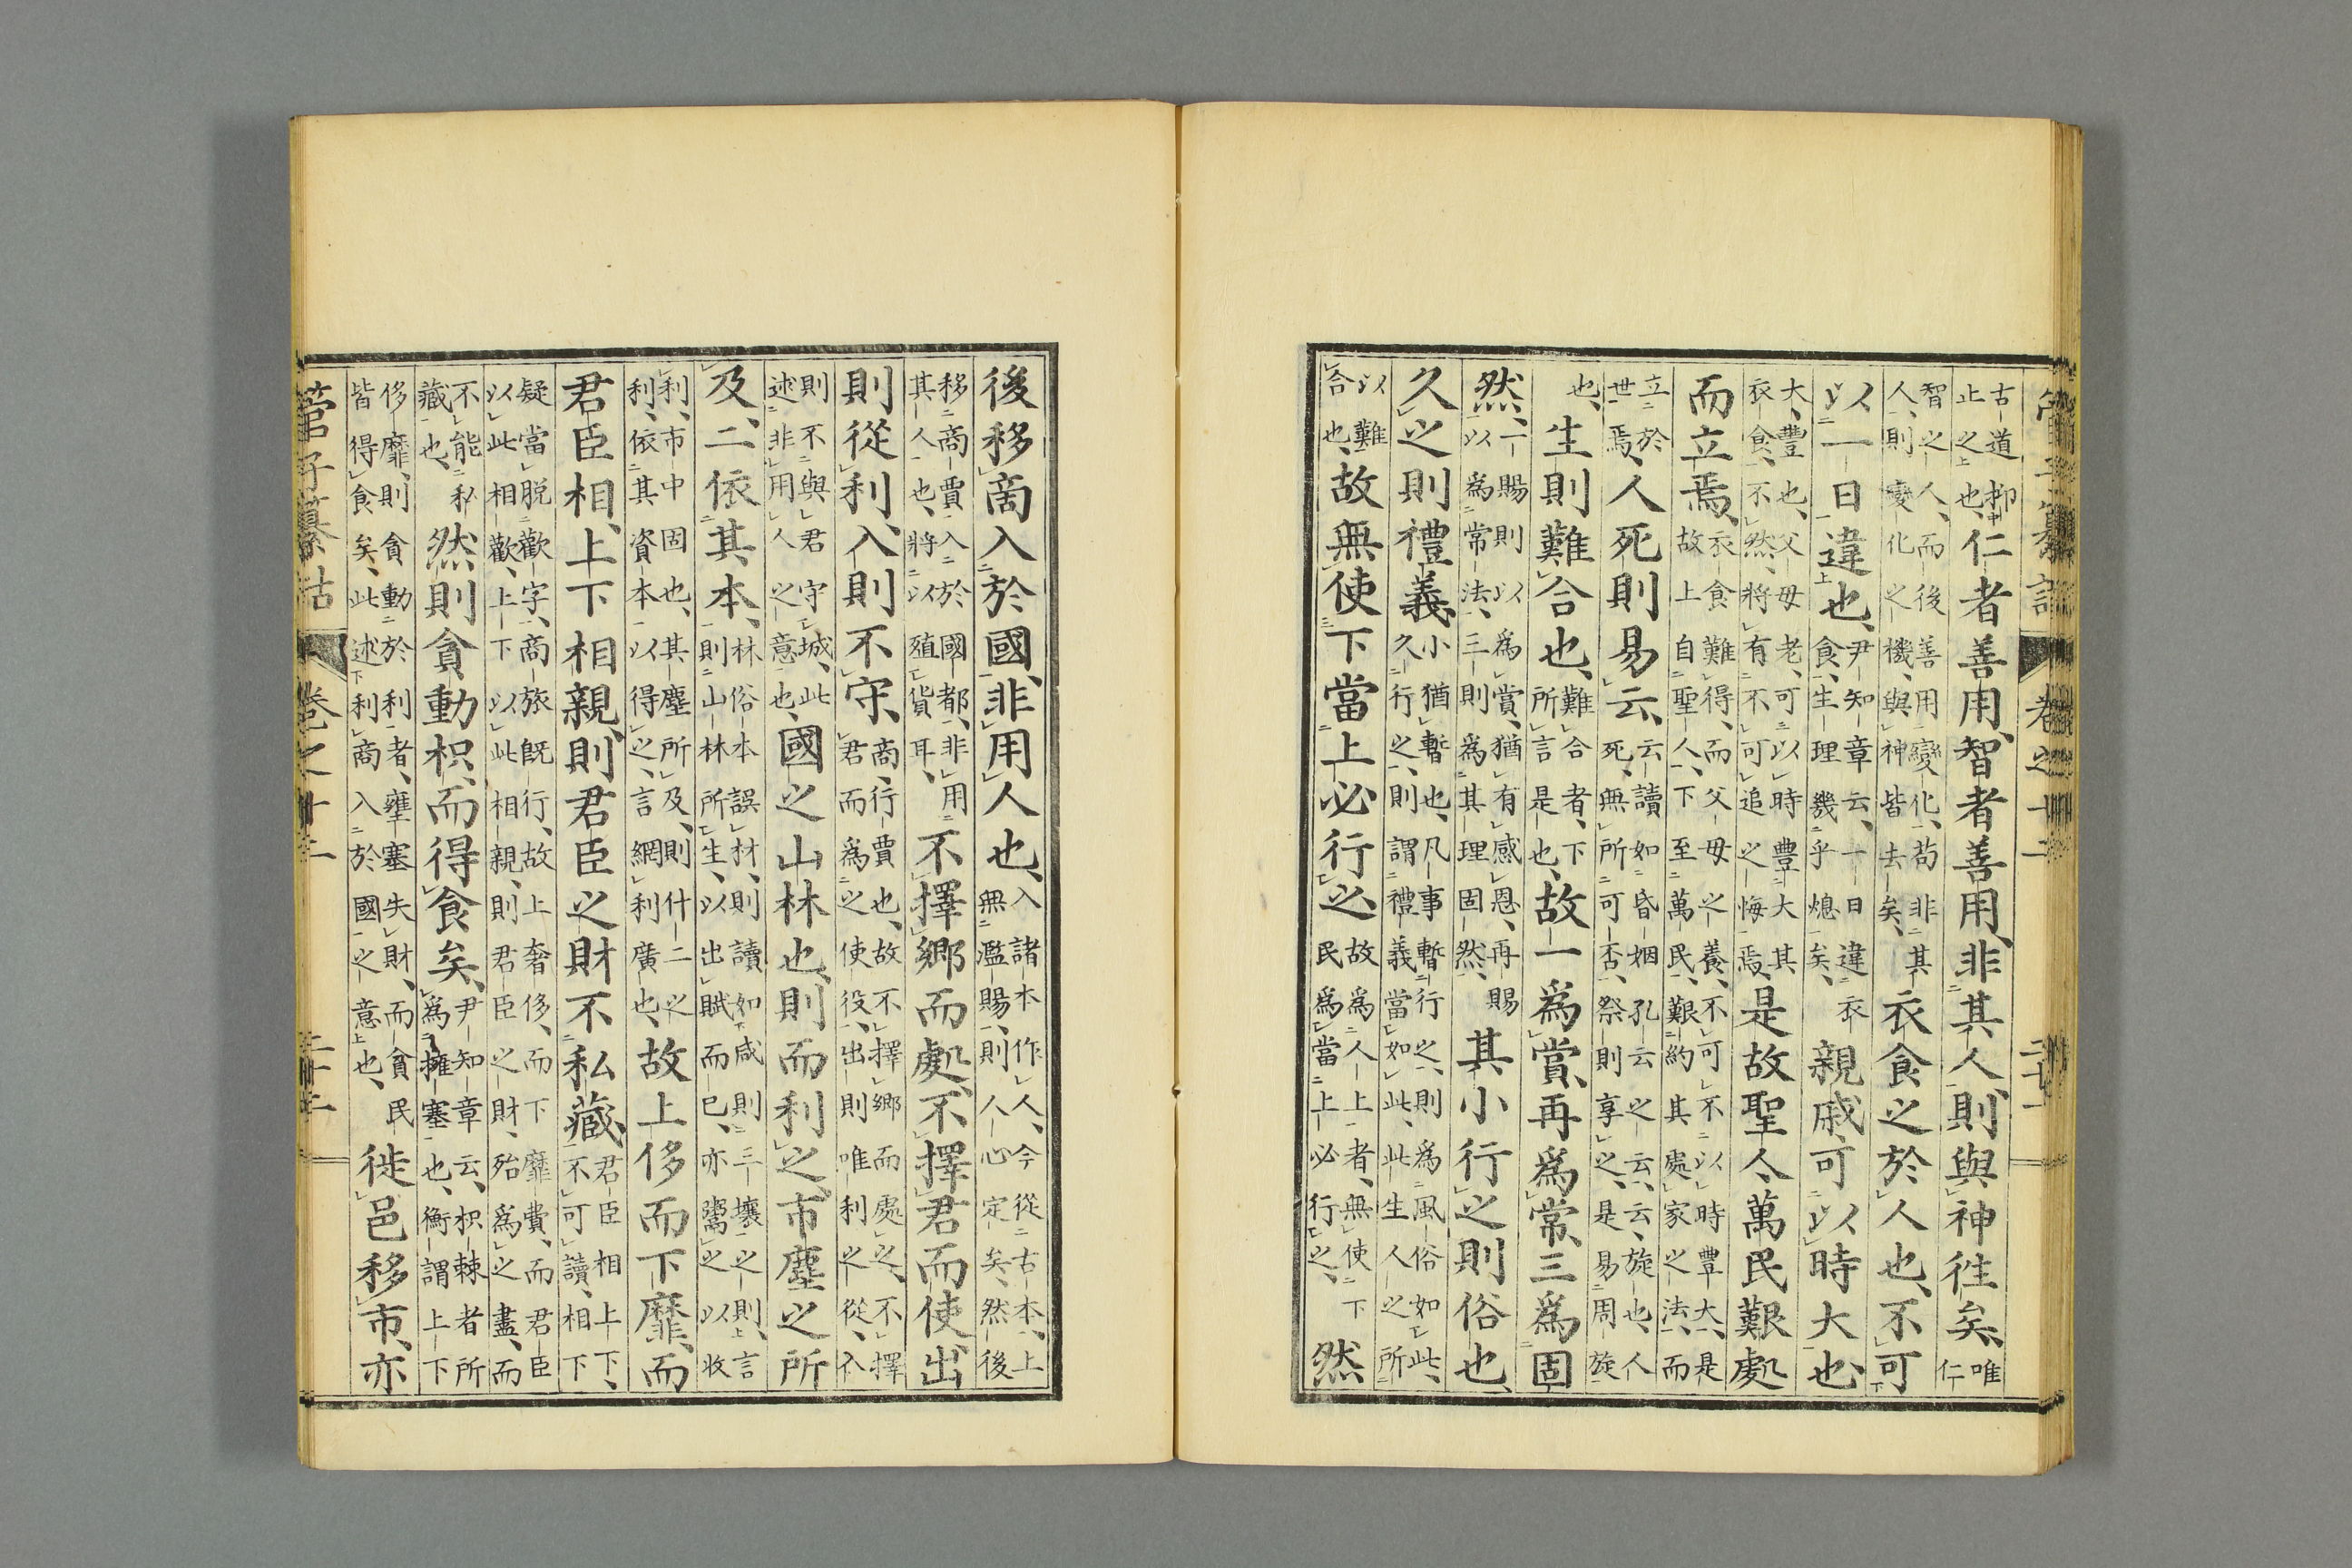 卷之十二
古道抑止之也、仁者善用、智者善用、非其人、則與神徃矣、唯仁
智之人、而後善用變化、苟非其人、則變化之機、與神皆去矣、衣食之於人也、不可
以一日違也、尹知章云、一日違衣食、生理幾乎熄矣、親戚可以時大也、
大、豐也、父母老、可以時豐大其衣食、不然、將有不可追之悔焉、是故聖人萬民艱處
而立焉、衣食難得、而父母之養、不可不以時豐大、是故上自聖人、下至萬民、艱約其處家之法、而
立於世焉、人死則易云、云讀如昏姻孔云之云、云、旋也、人死、無所可否、祭則享之、是易周旋
也、生則難合也、難合者、下所言是也、故一爲賞、再爲常、三爲固
然、一賜則以爲賞、猶有感恩、再賜以爲常法、三則爲其理固然、其小行之則俗也、
久之則禮義、小猶暫也、凡事暫行之、則爲風俗如此、久行之、則謂禮義當如此、此生人之所
以難合也、故無使下當上必行之、故爲人上者、無使下民爲當上必行之、然
後移商入於國、非用人也、入諸本作人、今從古本、上無濫賜、則人心定矣、然後
移商賈入於國都、非用其人也、將以殖貨耳、不擇鄉而處、不擇君而使、出
則從利、入則不守、商、行賈也、故不擇鄉而處之、不擇君而爲之使役、出則唯利之從、入
則不與君守城、此述非用人之意也、國之山林也、則而利之、市塵之所
及、二依其本、林俗本誤材、則讀如咸則三壤之則、言則山林所生、以出賦而已、亦鬻之以收
利、市中固也、其塵所及、則什二之利、依其資本以得之、言網利廣也、故上侈而下靡、而
君臣相、上下相親、則君臣之財不私藏、君臣相上下、不可讀、相下
疑當脫歡字、商旅旣行、故上奢侈、而下靡費、而君臣以此相歡、上下以此相親、則君臣之財、殆爲之盡、而
不能私藏也、然則貪動枳、而得食矣、尹知章云、枳棘者所爲擁塞也、衡謂上下
侈靡、則貪動於利者、壅塞失財、而貪民皆得食矣、此述下利商入於國之意也、徙邑移市、亦
管子纂詁 卷之十二 二十二